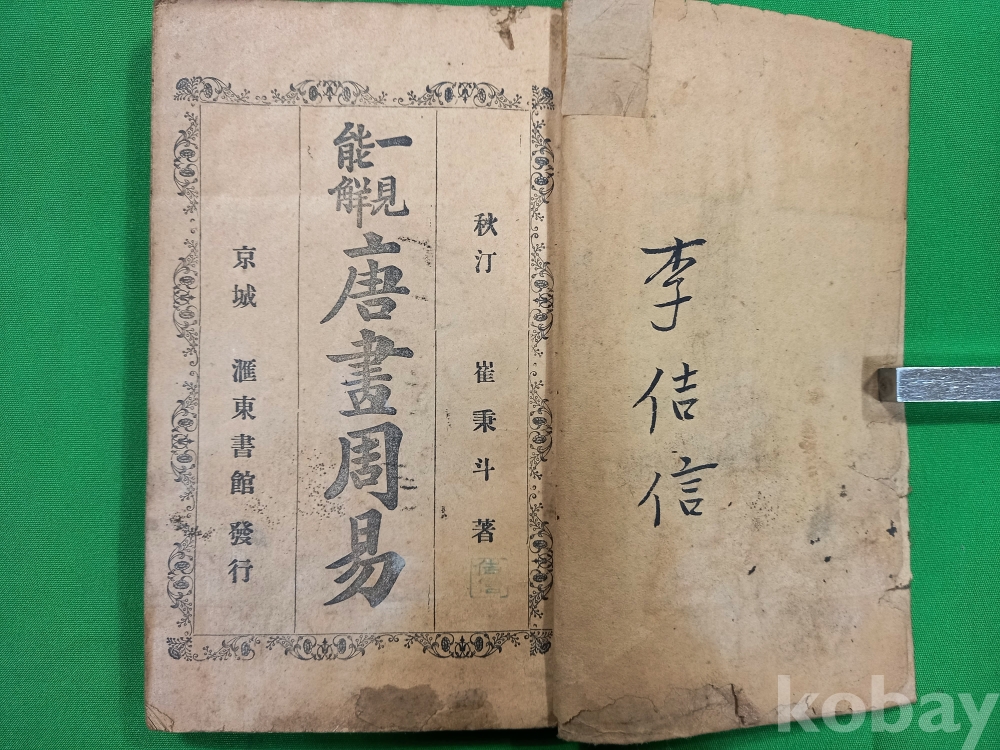 李佶信
秋汀 崔秉斗 著
一見
能解
唐畫周易
京城 滙東書館 發行
kobay